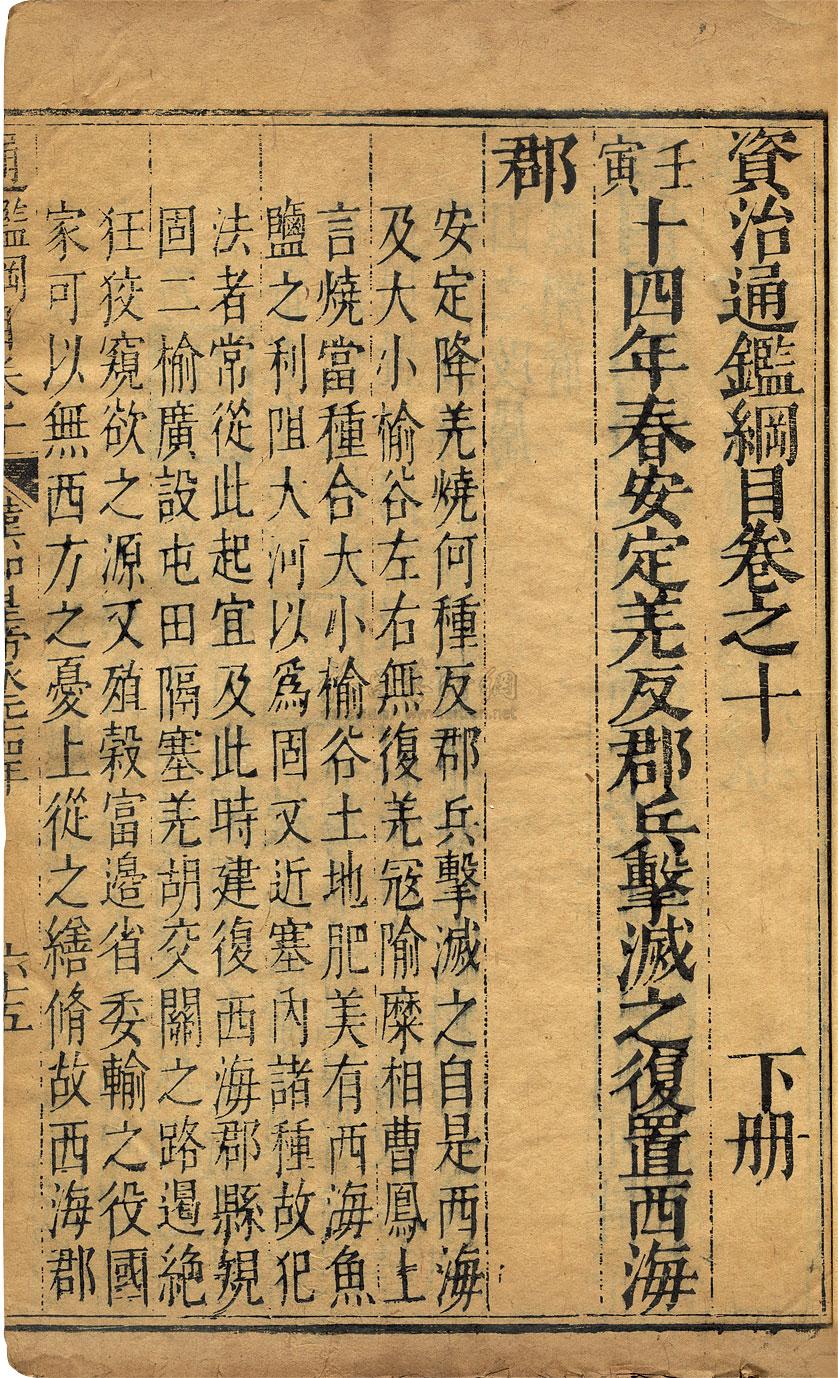 資治通鑑綱目卷之十 下册
壬寅十四年春安定羌反郡兵擊滅之復置西海
郡
安定降羌燒何種反郡兵擊滅之自是西海
及大小榆谷左右無復羌冦隃糜相曹鳳上
言燒當種合大小榆谷土地肥美有西海魚
鹽之利阻大河以爲固又近塞內諸種故犯
法者常從此起宜及此時建復西海郡縣規
固二榆廣設屯田隔塞羌胡交關之路遏絶
狂狡窺欲之源又殖榖富邊省委輸之役國
家可以無西方之憂上從之繕脩故西海郡